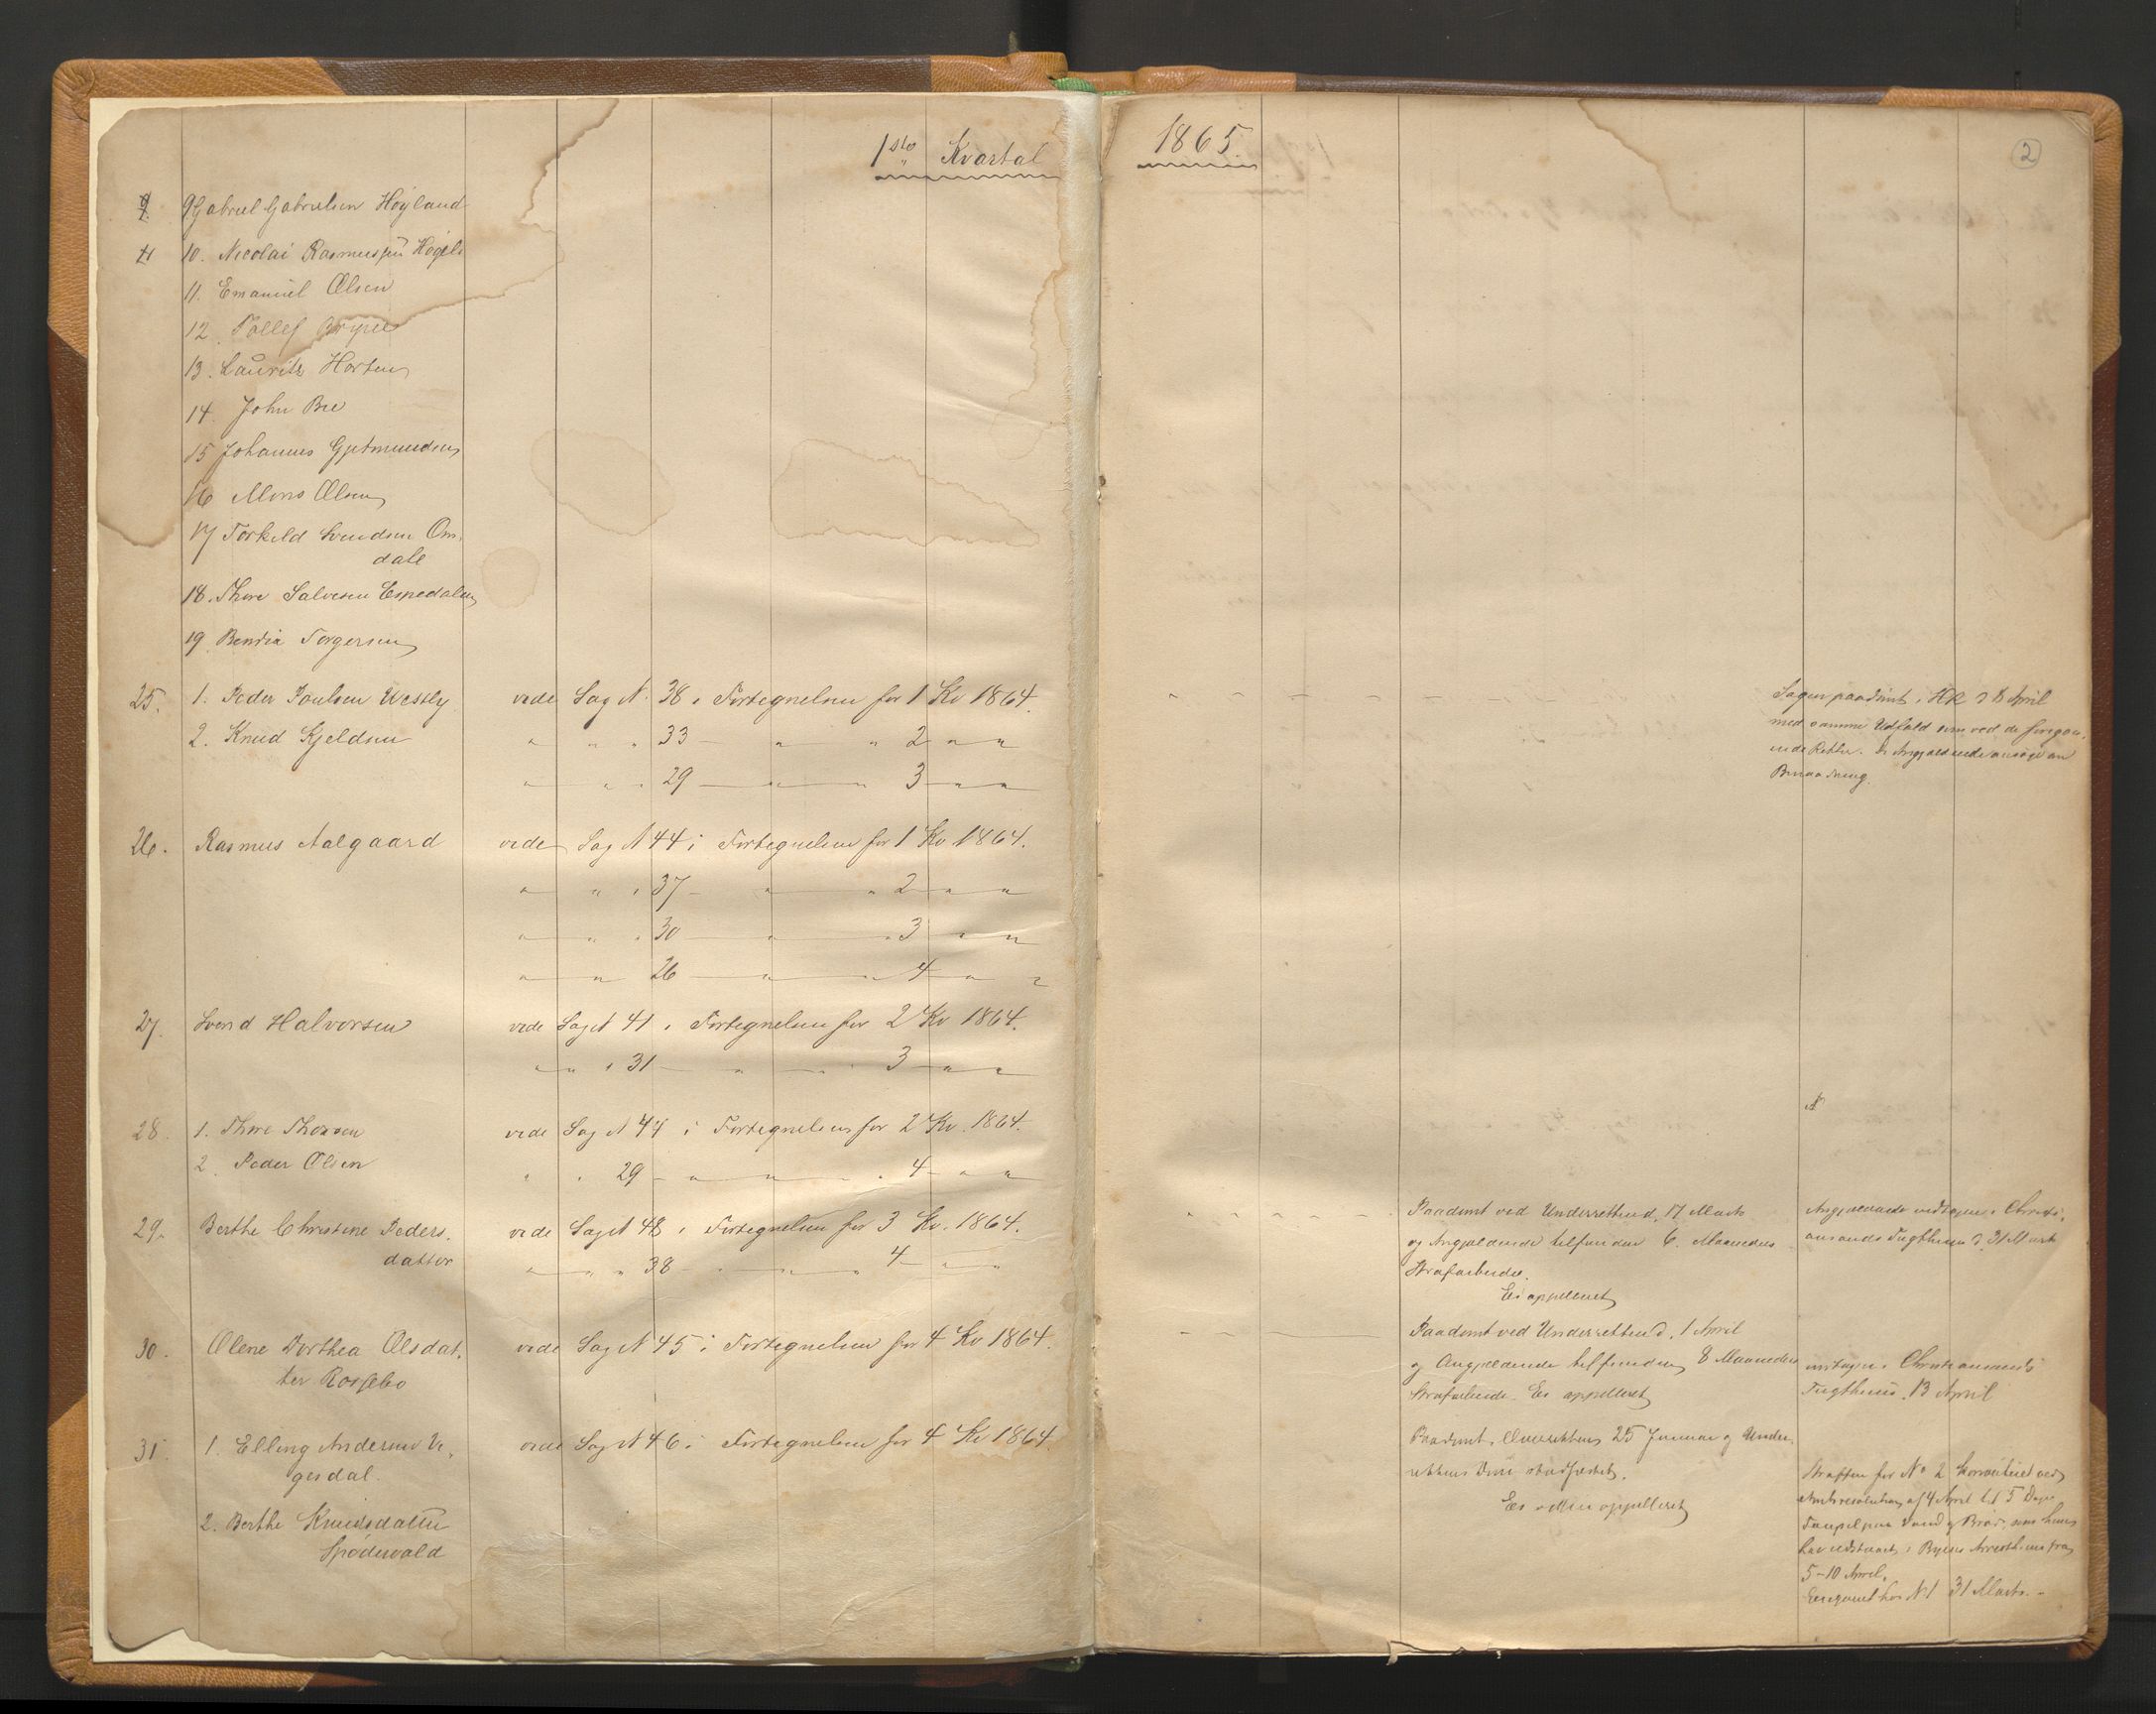 1ste Kvartal 1865.
2
9 Gabriel Gabrielsen Høyland
10. Nicolai Rasmussen
11. Emanuel Olsen
12. Tollef
13. Lauritz Hortens
14. John Bee
15 Johannes Gjetmundsen
16 Mons Olsen
17 Torkeld Svendsen Om-
dale
18. Thore Salvesen Espedalen
19 Torgersen
25. 1. Peder Poulsen Westly vide Sag N. 38 i Fortegnelsen for 1 Kv 1864.
2. Knud Kjeldsen " " " 33 — " " 2 " "
" " " 29 — " " 3 — " "
26. Rasmus Aalgaard vide Sag N 44 i Fortegnelsen for 1 Kv 1864.
" " " 37 — " " 2 — " "
" " " 30 — " " 3 " "
" " 26 — " " 4 — " "
27. Svend Halvorsen vide Sag N 41 i Fortegnelsen for 2 Kv 1864.
" " " 31 — " " 3 — " "
28. 1. Thore Thorsen vide Sag N 44 i Fortegnelsen for 2 Kv. 1864.
2. Peder Olsen " " 29 — " " " 4 — " "
29. Berthe Christine Peders- vide Sag N 48 i Fortegnelsen for 3 Kv. 1864.
datter " " " 38 — " " 4 — " "
30. Olene Dorthea Olsdat- vide Sag N 45 i Fortegnelsen for 4 Kv 1864.
ter Rossebo
31. 1. Elling Andersen Ve- vide Sag N 46 i Fortegnelsen for 4 Kv 1864
gesdal.
2. Berthe Knudsdatter
Spødervold
Sagen paadømt i HR d 8 April
med samme Udfald som ved de foregaa-
ende Retter. De Angjældende ansøge om
Benaadning.
Paadømt ved Underretten d. 17 Marts
og Angjældende tilfunden 6 Maaneders
Strafarbeide.
Ei appelleret
Angjældende modtagen i Christi-
ansands Tugthuus d. 31 Marts
Paadømt ved Underretten d. 1 April
og Angjældende tilfunden 8 Maaneders
Strafarbeide. Ei appelleret
modtagen i Christiansands
Tugthuus 13 April
Paadømt i Overretten 25 Januar og Under-
rettens Dom stadfæstet.
Ei videre appelleret
Straffen for No 2 konverteret ved
Amtsresolution af 4 April til 5 Dages
Fængsel paa Vand og Brød, som hun
har udstaaet i Byens Arresthuus fra
5-10 April.
Execqveret for N 1 31 Marts. -